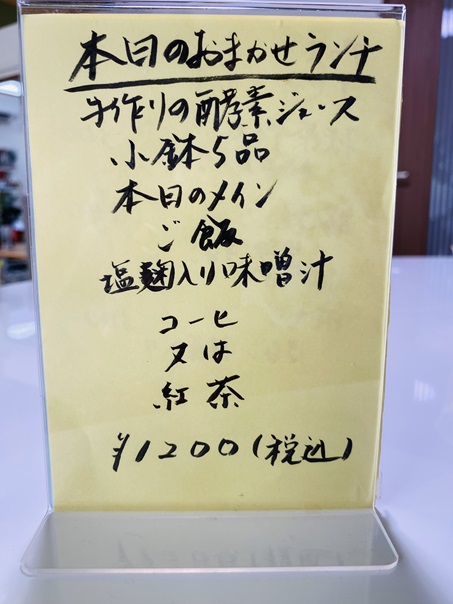 本日のおまかせランチ
手作りの酵素ジュース
小鉢5品
本日のメイン
ご飯
塩麹入り味噌汁
コーヒ
又は
紅茶
¥1200(税込)